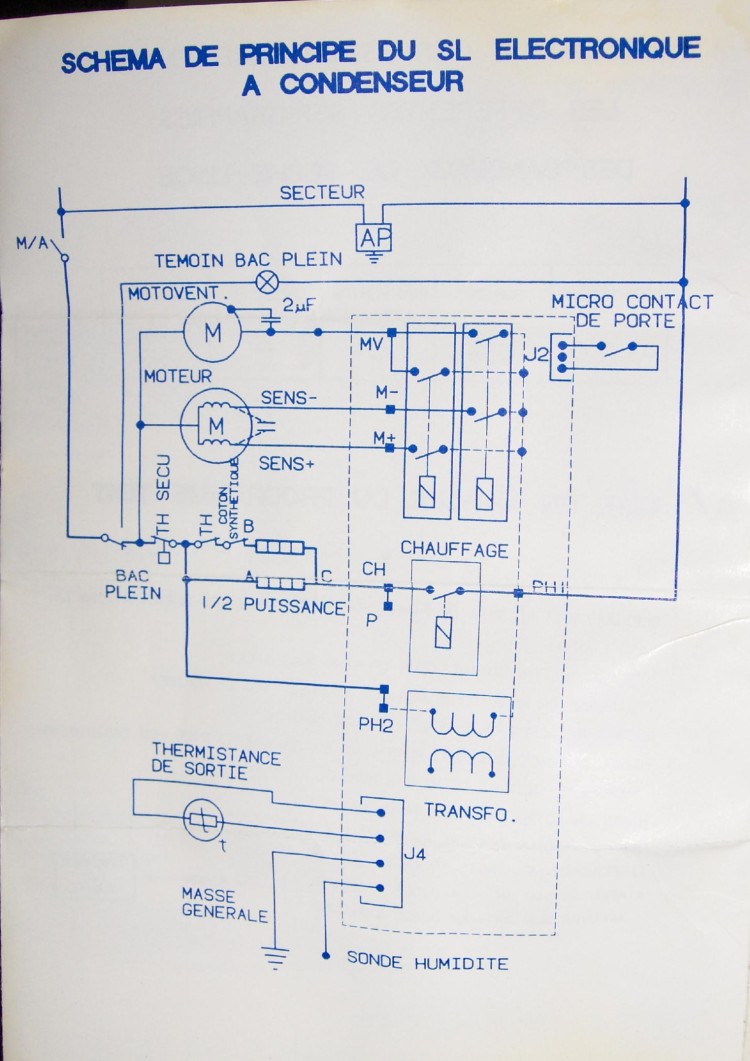 SCHEMA DE PRINCIPE DU SL ELECTRONIQUE
A CONDENSEUR
SECTEUR
AP
M/A
TEMOIN BAC PLEIN
MOTOVENT.
2µF
M
MICRO CONTACT
DE PORTE
MV
J2
MOTEUR
SENS-
M-
M
M+
SENS+
TH SECU
TH
COTON
SYNTHETIQUE
B
CHAUFFAGE
BAC
PLEIN
A
C
CH
PH1
1/2 PUISSANCE
P
PH2
THERMISTANCE
DE SORTIE
TRANSFO.
t
t
J4
MASSE
GENERALE
SONDE HUMIDITE